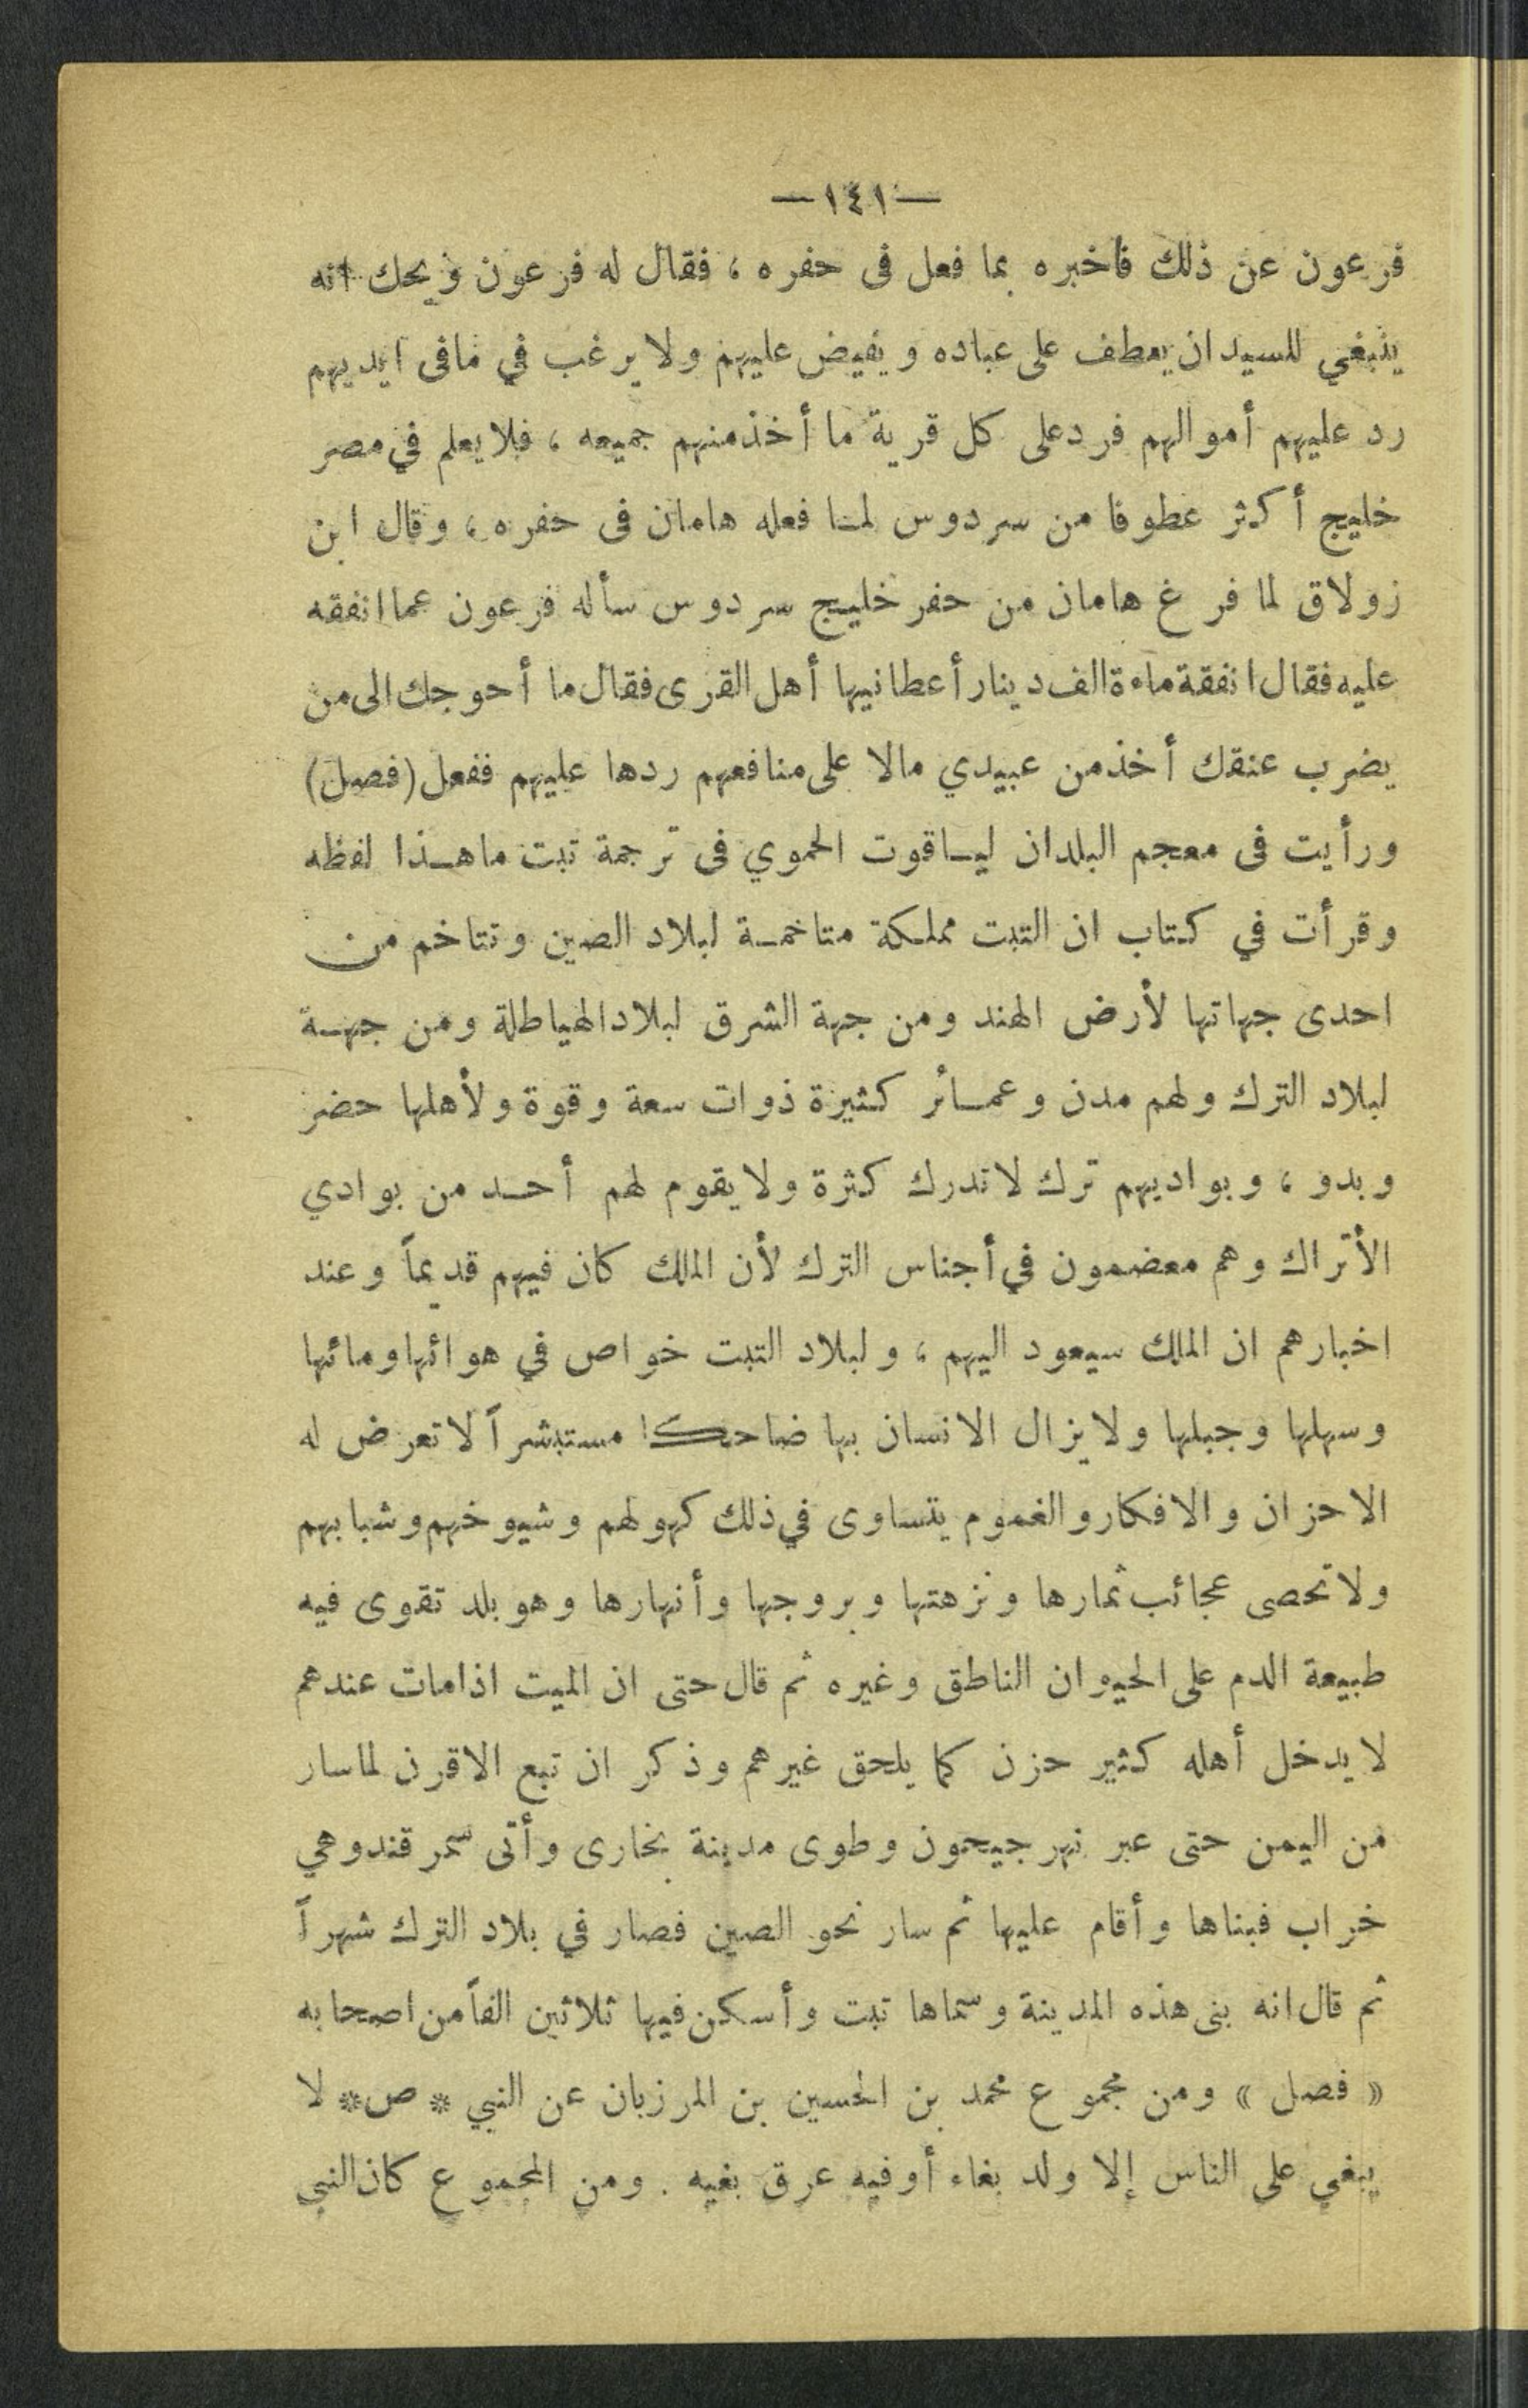 —١٤١—
فرعون عن ذلك فأخبره بما فعل فى حفره ، فقال له فرعون ويحك انه
ينبغي للسيد ان يعطف على عباده ويفيض عليهم ولا يرغب في مافى ايديهم
رد عليهم أموالهم فرد على كل قرية ما أخذ منهم جميعه ، فلا يعلم في مصر
خليج أكثر عطوفا من سردوس لما فعله هامان فى حفره ، وقال ابن
زولاق لما فرغ هامان من حفر خليج سردوس سأله فرعون عما انفقه
عليه فقال انفقة ماءة الف دينار أعطانيها أهل القرى فقال ما أحوجك الى من
يضرب عنقك أخذ من عبيدي مالا على منافعهم ردها عليهم ففعل (فصل)
ورأيت فى معجم البلدان لياقوت الحموي فى ترجمة تبت ما هذا لفظه
وقرأت في كتاب ان التبت مملكة متاخمة لبلاد الصين وتتاخم من
احدى جهاتها لأرض الهند ومن جهة الشرق لبلاد الهياطلة ومن جهة
لبلاد الترك ولهم مدن وعمائر كثيرة ذوات سعة وقوة ولأهلها حضر
وبدو ، وبواديهم ترك لا تدرك كثرة ولا يقوم لهم أحد من بوادي
الأتراك وهم معضمون في أجناس الترك لأن الملك كان فيهم قديماً وعند
اخبارهم ان الملك سيعود اليهم ، ولبلاد التبت خواص في هوائها ومائها
وسهلها وجبلها ولا يزال الانسان بها ضاحكا مستبشراً لا تعرض له
الاحزان والافكار والغموم يتساوى في ذلك كهولهم وشيوخهم وشبابهم
ولا تحصى عجائب ثمارها ونزهتها وبروجها وأنهارها وهو بلد تقوى فيه
طبيعة الدم على الحيوان الناطق وغيره ثم قال حتى ان الميت اذا مات عندهم
لا يدخل أهله كثير حزن كما يلحق غيرهم وذكر ان تبع الاقرن لما سار
من اليمن حتى عبر نهر جيحون وطوى مدينة بخارى وأتى سمرقند وهي
خراب فبناها وأقام عليها ثم سار نحو الصين فصار في بلاد الترك شهراً
ثم قال انه بنى هذه المدينة وسماها تبت وأسكن فيها ثلاثين الفاً من اصحابه
« فصل » ومن مجموع محمد بن الحسين بن المرزبان عن النبي * ص * لا
يبغي على الناس إلا ولد بغاء أو فيه عرق بغيه . ومن المجموع كان النبي